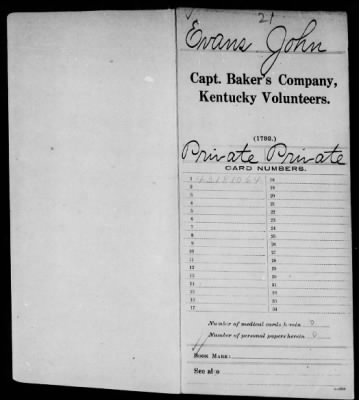 21
Evans John
Capt. Baker's Company,
Kentucky Volunteers.
Private Private
CARD NUMBERS.
1 18
2 19
3 20
4 21
5 22
6 23
7 24
8 25
9 26
10 27
11 28
12 29
13 30
14 31
15 32
16 33
17 34
Number of medical cards herein 0
Number of personal papers herein 0
BOOK MARK:
See also